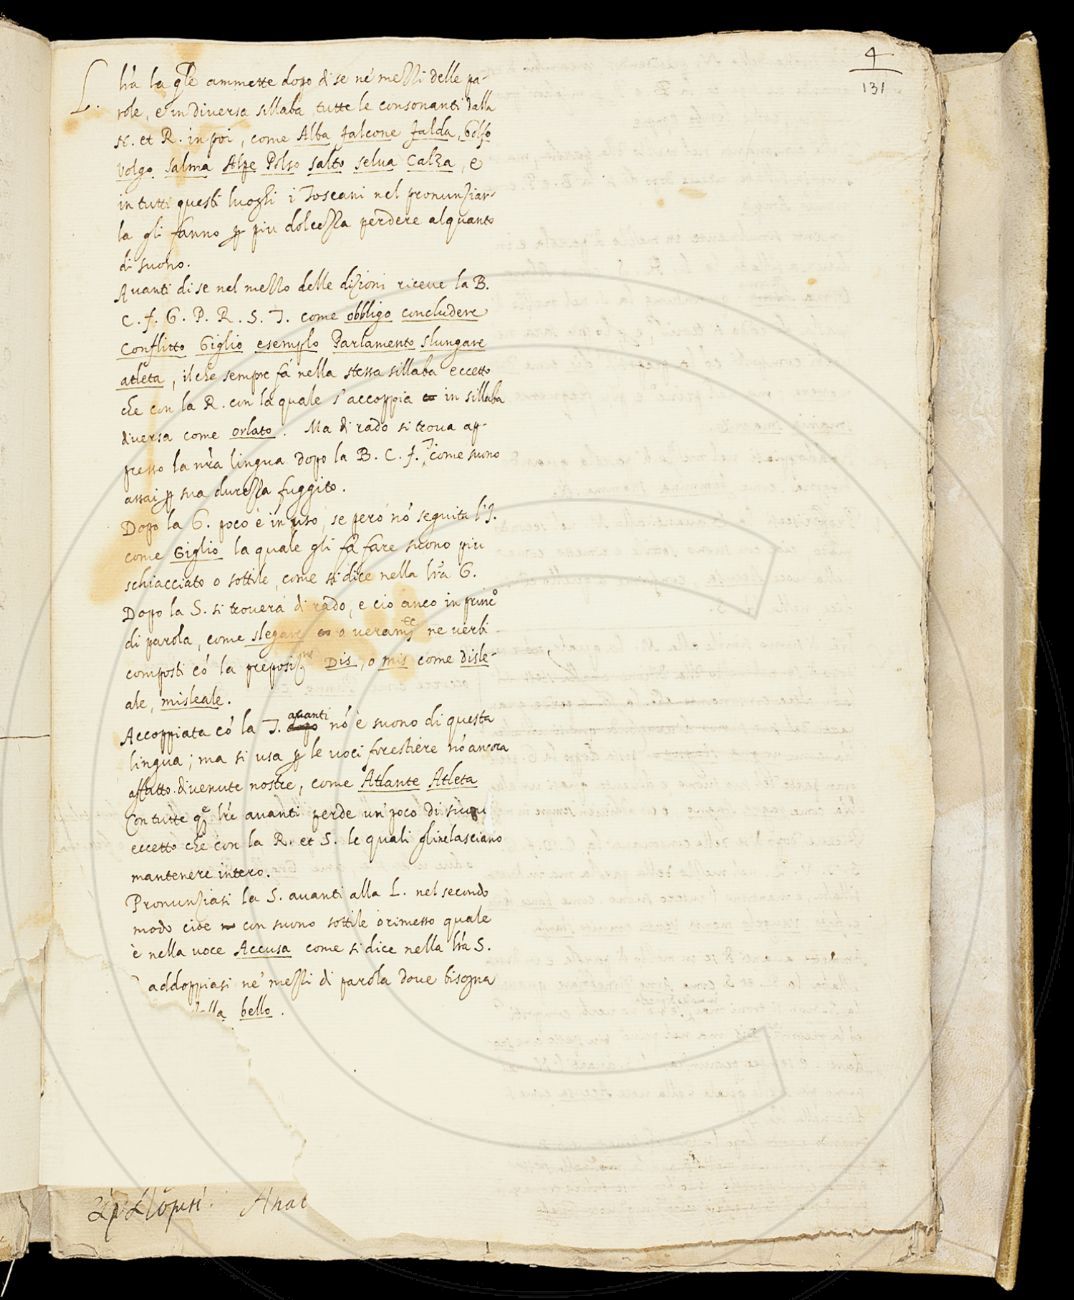 4
131
L. lr̃a la qle ammette dopo di se ne' mezzi delle pa-
role, e in diversa sillaba tutte le consonanti dalla
et R. in poi, come Alba falcone falda, Golfo
Volgo Salma Alpe Polso salto selva Calza, e
in tutti questi luoghi i Toscani nel pronunziar-
la gli fanno ꝑ piu dolcezza perdere alquanto
di suono.
Avanti di se nel mezzo delle dizioni riceve la B.
C. f. G. P. R. S. T. come obbligo concludere
Conflitto Giglio esemplo Parlamento slungare
atleta, il che sempre fa nella stessa sillaba eccetto
che con la R. con la quale s'accoppia in sillaba
diversa come orlato. Ma di rado si trova ap-
presso la nr̃a lingua dopo la B. C. f. T. come suono
assai ꝑ sua durezza fuggito.
Dopo la G. poco è in uso, se però nõ seguita l'I.
come Giglio la quale gli fa fare suono piu
schiacciato o sottile, come si dice nella lr̃a G.
Dopo la S. si troverà di rado, e ciò anco in princo
di parola, come slegare o veramte ne verbi
composti cõ la preposizne Dis, o mis come disle-
ale, misleale.
Accoppiata cõ la T. avanti nõ è suono di questa
lingua; ma si usa ꝑ le voci forestiere nõ ancora
affatto divenute nostre, come Atlante Atleta
Con tutte qe lr̃e avanti perde un poco di suono
eccetto che con la R. et S. le quali glinelasciano
mantenere intero.
Pronunziasi la S. avanti alla L. nel secondo
modo cioè con suono sottile o rimesso quale
è nella voce Accusa come si dice nella lr̃a S.
addoppiasi ne' mezzi di parola dove bisogna
bello.